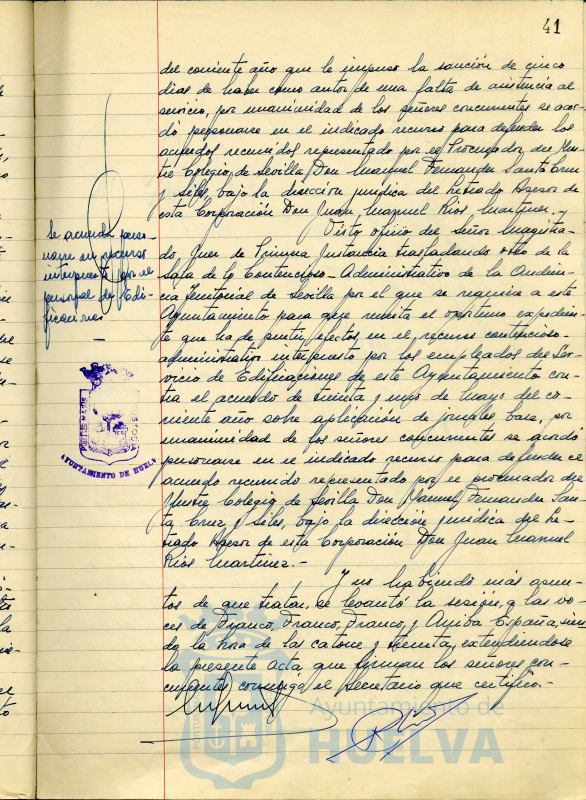 41
del corriente año que le impuso la sanción de cinco
dias de haber como autor de una falta de asistencia al
servicio, por unanimidad de los señores concurrentes se acor-
dó personarse en el indicado recurso para defender los
acuerdos recurridos representado por el Procurador del Ilus-
tre Colegio de Sevilla, Don Manuel Fernandez Santa Cruz
y Siles, bajo la dirección juridica del Letrado Asesor de
esta Corporación Don Juan Manuel Rios Martinez.-
Se acuerda perso-
narse en recurso
interpuesto por el
personal de Edi-
ficaciones
Visto oficio del Señor Magistra-
do, Juez de Primera Instancia trasladando otro de la
Sala de lo Contencioso-Administrativo de la Audien-
cia Territorial de Sevilla por el que se requiere a este
Ayuntamiento para que remita el oportuno expedien-
te que ha de surtir efectos en el recurso contencioso-
administrativo interpuesto por los empleados del Ser-
vicio de Edificaciones de este Ayuntamiento con-
tra el acuerdo de treinta y uno de Mayo del co-
rriente año sobre aplicación de jornales base, por
unanimidad de los señores concurrentes se acordó
personarse en el indicado recurso para defender el
acuerdo recurrido representado por el procurador del
Ilustre Colegio de Sevilla Don Manuel Fernandez San-
ta Cruz y Siles, bajo la dirección juridica del Le-
trado Asesor de esta Corporación Don Juan Manuel
Rios Martinez.-
AYUNTAMIENTO DE HUELVA
Y no habiendo más asun-
tos de que tratar, se levantó la sesión, a las vo-
ces de Franco, Franco, Franco, y Arriba España, sien-
do la hora de las catorce y treinta, extendiendose
la presente acta que firman los señores con-
currentes conmigo el Secretario que certifico.-
Ayuntamiento de
HUELVA